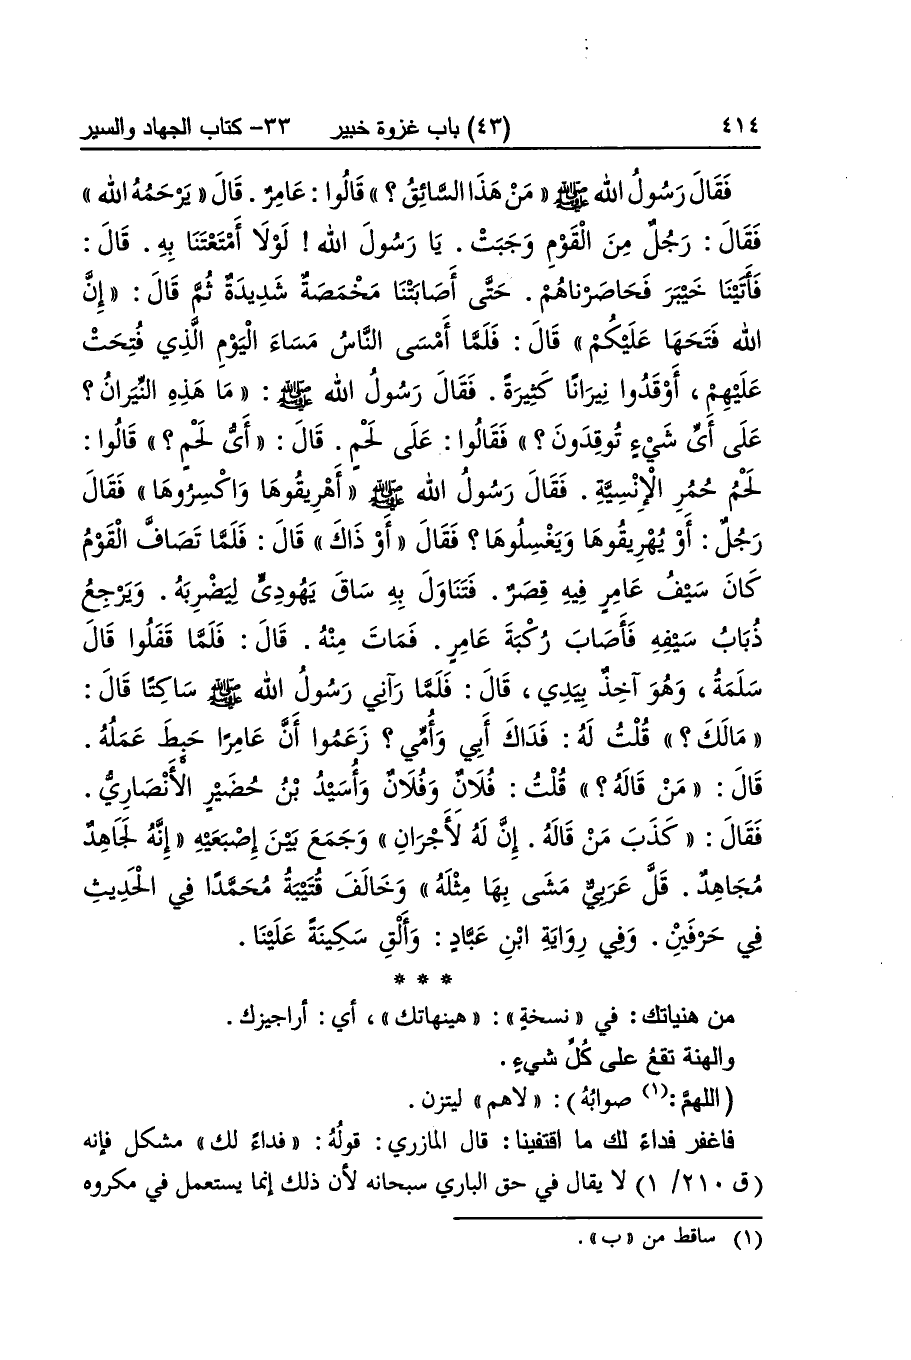 ٤١٤ (٤٣) باب غزوة خيبر ٣٣- كتاب الجهاد والسير
فَقَالَ رَسُولُ الله ﷺ « مَنْ هَذَا السَّائِقُ ؟ » قَالُوا : عَامِرٌ . قَالَ « يَرْحَمُهُ الله »
فَقَالَ : رَجُلٌ مِنَ الْقَوْمِ وَجَبَتْ . يَا رَسُولَ الله ! لَوْلَا أَمْتَعْتَنَا بِهِ . قَالَ :
فَأَتَيْنَا خَيْبَرَ فَحَاصَرْناهُمْ . حَتَّى أَصَابَتْنَا مَخْمَصَةٌ شَدِيدَةٌ ثُمَّ قَالَ : « إِنَّ
الله فَتَحَهَا عَلَيْكُمْ » قَالَ : فَلَمَّا أَمْسَى النَّاسُ مَسَاءَ الْيَوْمِ الَّذِي فُتِحَتْ
عَلَيْهِمْ ، أَوْقَدُوا نِيرَانًا كَثِيرَةً . فَقَالَ رَسُولُ الله ﷺ : « مَا هَذِهِ النِّيرَانُ ؟
عَلَى أَىِّ شَيْءٍ تُوقِدُونَ ؟ » فَقَالُوا : عَلَى لَحْمٍ . قَالَ : « أَىُّ لَحْمٍ ؟ » قَالُوا :
لَحْمُ حُمُرِ الْإِنْسِيَّةِ . فَقَالَ رَسُولُ الله ﷺ « أَهْرِيقُوهَا وَاكْسِرُوهَا » فَقَالَ
رَجُلٌ : أَوْ يُهْرِيقُوهَا وَيَغْسِلُوهَا ؟ فَقَالَ « أَوْ ذَاكَ » قَالَ : فَلَمَّا تَصَافَّ الْقَوْمُ
كَانَ سَيْفُ عَامِرٍ فِيهِ قِصَرٌ . فَتَنَاوَلَ بِهِ سَاقَ يَهُودِىٍّ لِيَضْرِبَهُ . وَيَرْجِعُ
ذُبَابُ سَيْفِهِ فَأَصَابَ رُكْبَةَ عَامِرٍ . فَمَاتَ مِنْهُ . قَالَ : فَلَمَّا قَفَلُوا قَالَ
سَلَمَةُ ، وَهُوَ آخِذٌ بِيَدِي ، قَالَ : فَلَمَّا رَآنِي رَسُولُ الله ﷺ سَاكِتًا قَالَ :
« مَالَكَ ؟ » قُلْتُ لَهُ : فَدَاكَ أَبِي وَأُمِّي ؟ زَعَمُوا أَنَّ عَامِرًا حَبِطَ عَمَلُهُ .
قَالَ : « مَنْ قَالَهُ ؟ » قُلْتُ : فُلَانٌ وَفُلَانٌ وَأُسَيْدُ بْنُ حُضَيْرٍ الْأَنْصَارِيُّ .
فَقَالَ : « كَذَبَ مَنْ قَالَهُ . إِنَّ لَهُ لَأَجْرَانِ » وَجَمَعَ بَيْنَ إِصْبَعَيْهِ « إِنَّهُ لَجَاهِدٌ
مُجَاهِدٌ . قَلَّ عَرَبِيٌّ مَشَى بِهَا مِثْلَهُ » وَخَالَفَ قُتَيْبَةُ مُحَمَّدًا فِي الْحَدِيثِ
فِي حَرْفَيْنِ . وَفِي رِوَايَةِ ابْنِ عَبَّادٍ : وَأَلْقِ سَكِينَةً عَلَيْنَا .
* * *
من هنياتك : في « نسخةٍ » : « هينهاتك » ، أي : أراجيزك .
والهنة تقعُ على كُلِّ شيءٍ .
( اللهمَّ :(١) صوابُهُ ) : « لاهم » ليتزن .
فاغفر فداءً لك ما اقتفينا : قال المازري : قولُهُ : « فداءً لك » مشكل فإنه
(ق ٢١٠/ ١) لا يقال في حق الباري سبحانه لأن ذلك إنما يستعمل في مكروه
(١) ساقط من « ب » .